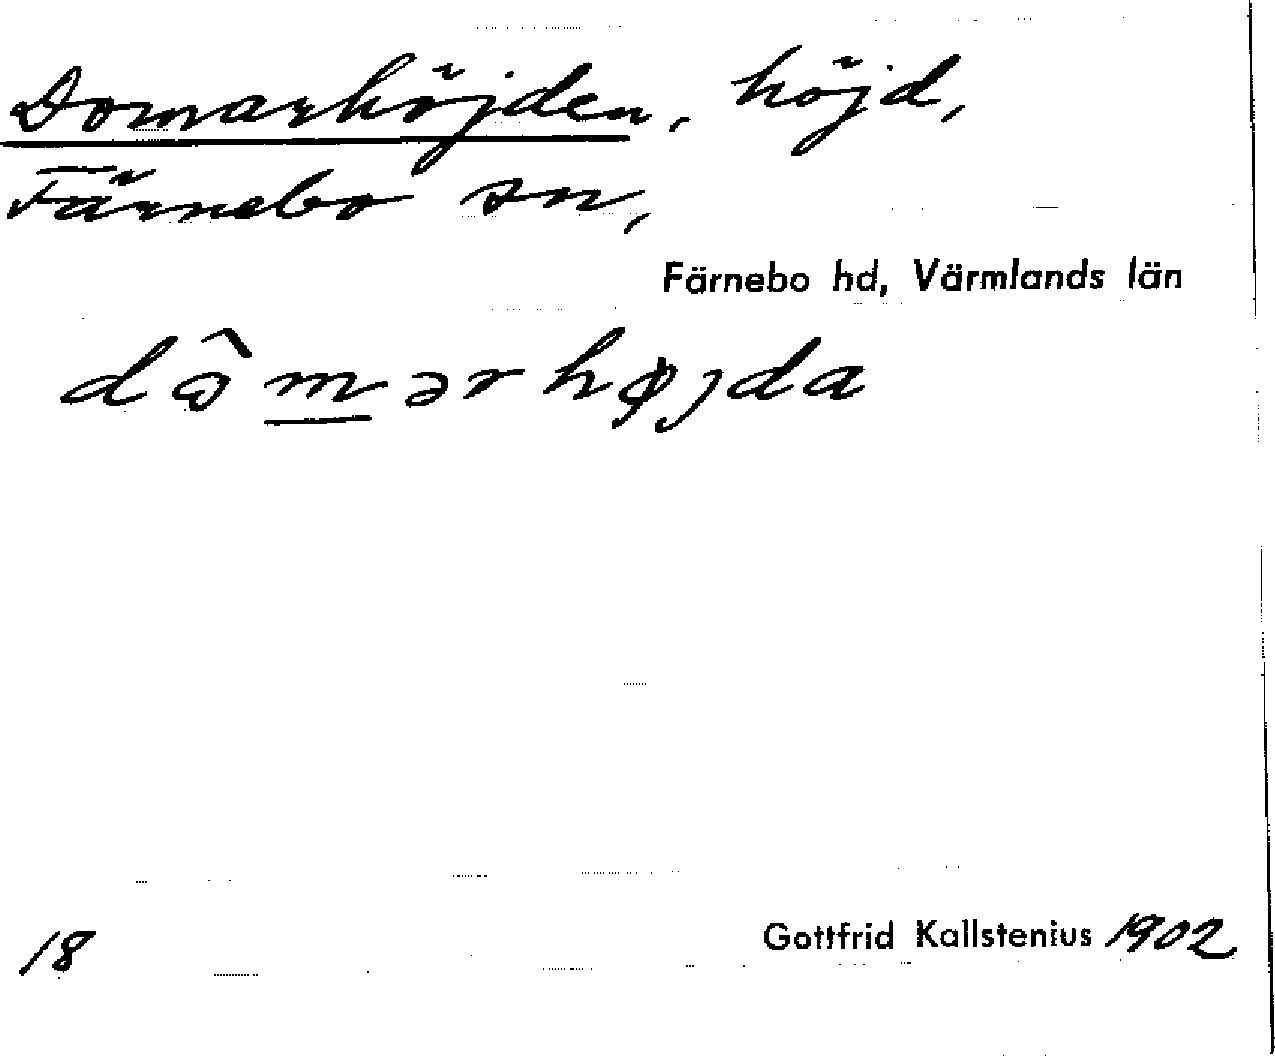 Domarhöjden, höjd,
Färnebo sn,
Färnebo hd, Värmlands län
dômərhøjda
18
Gottfrid Kallstenius 1902